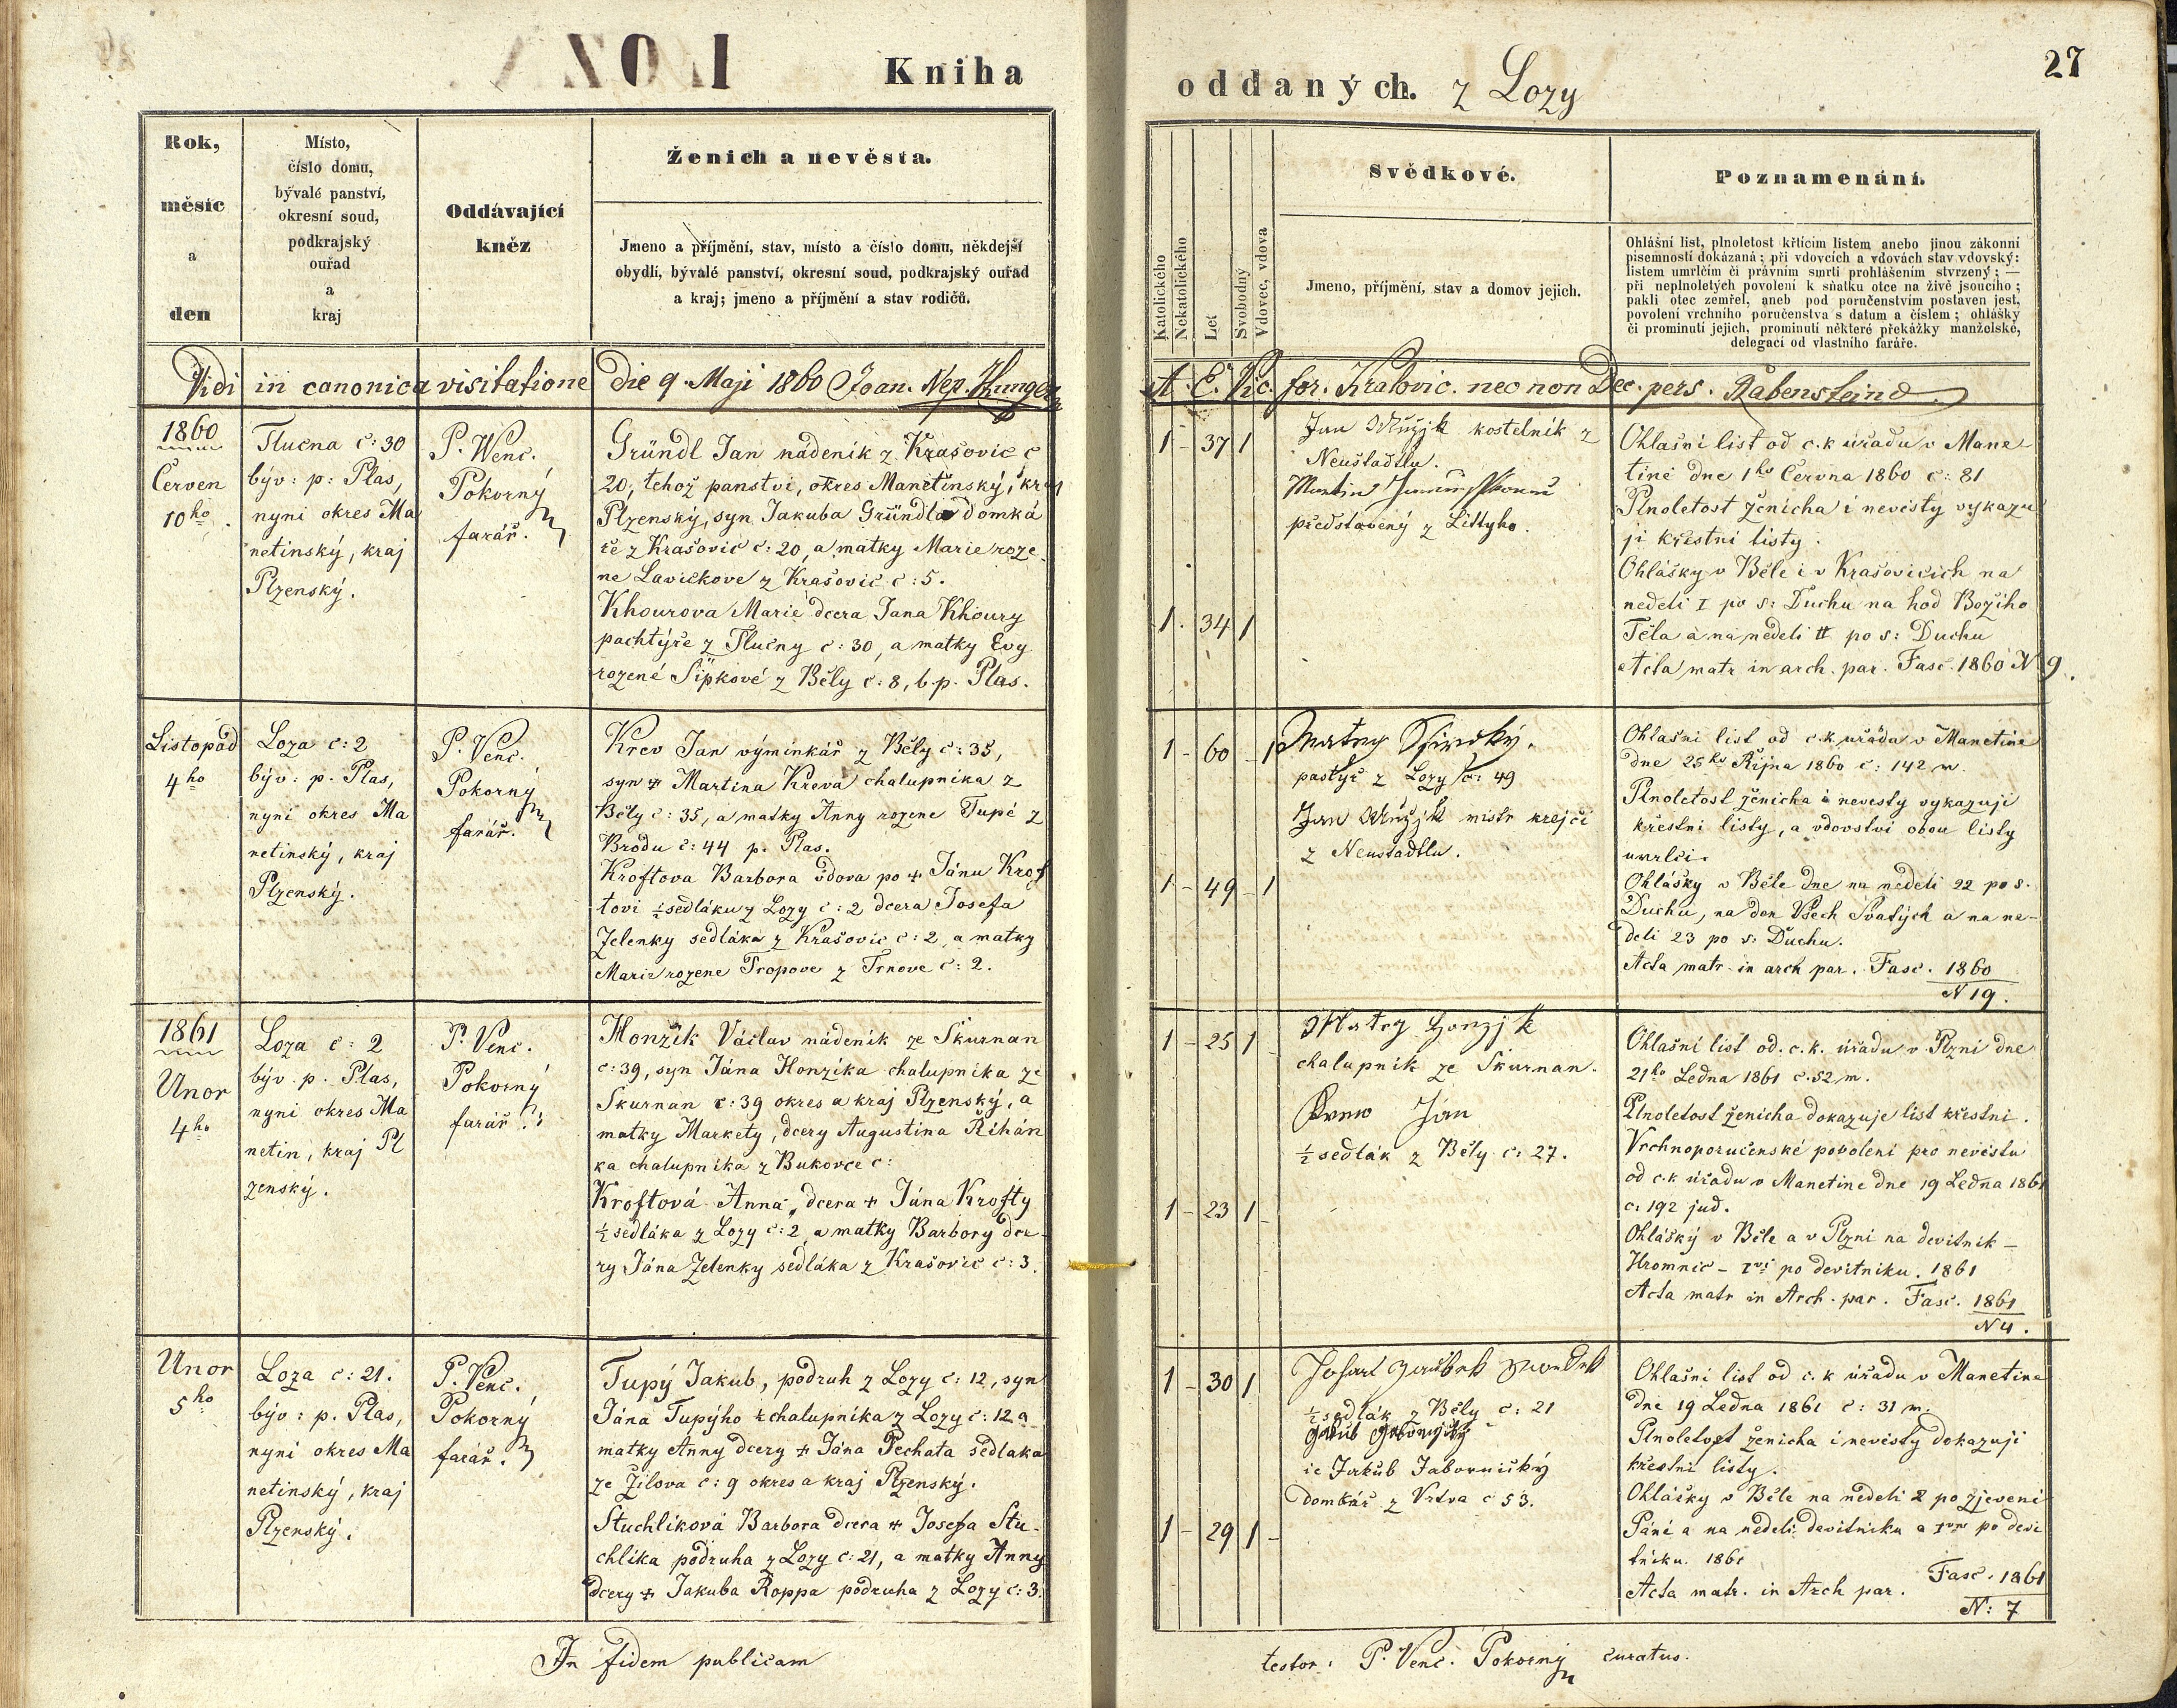 Kniha
oddaných. z Lozy
27
Rok,
měsíc
a
den
Místo,
číslo domu,
bývalé panství,
okresní soud,
podkrajský
ouřad
a
kraj
Oddávající
kněz
Ženich a nevěsta.
Jmeno a příjmění, stav, místo a číslo domu, někdejší
obydlí, bývalé panství, okresní soud, podkrajský ouřad
a kraj; jmeno a příjmění a stav rodičů.
Katolického
Nekatolického
Let
Svobodný
Vdovec, vdova
Svědkové.
Jmeno, příjmění, stav a domov jejich.
Poznamenání.
Ohlášní list, plnoletost křtícím listem anebo jinou zákonní
písemností dokázaná; při vdovcích a vdovách stav vdovský:
listem umrlčím či právním smrti prohlášením stvrzený; —
při neplnoletých povolení k sňatku otce na živě jsoucího;
pakli otec zemřel, aneb pod poručenstvím postaven jest,
povolení vrchního poručenstva s datum a číslem; ohlášky
či prominutí jejich, prominutí některé překážky manželské,
delegací od vlastního faráře.
Vidi in canonica visitatione die 9. Maji 1860 Joan. Nep.
A. E. Vic. for. Kralovic. nec non Dec. pers. Rabenstein
1860
Červen
10ho.
Tlucna c: 30
býv: p: Plas,
nyni okres Ma
netinský, kraj
Plzenský.
P. Wenc.
Pokorný
farář.
Gründl Jan nádeník z Krašovic c
20, tehož panství, okres Manetinský, kraj
Plzenský, syn Jakuba Gründla domká
ře z Krašovic c: 20, a matky Marie roze
ne Lavičkove z Krašovic c: 5.
Khourova Marie dcera Jana Khoury
pachtýře z Tlučny c: 30, a matky Evy
rozené Šípkové z Běly c: 8, b. p. Plas.
1 - 37 1
1. 34 1
Jan kostelník z
Neustadtlu.
Martin
představený z Littyho.
Ohlašni list od c.k úřadu v Mane-
tině dne 1ho Června 1860 c: 81
Plnoletost ženicha i nevěsty vykazu
ji křestní listy.
Ohlášky v Běle i v Krašovicich na
neděli I po s: Duchu na hod Božího
Těla a na neděli II po s: Duchu
Acta matr. in arch. par. Fasc. 1860 N 9.
Listopad
4ho
Loza c: 2
býv: p. Plas,
nyní okres Ma
netinský, kraj
Plzenský.
P. Venc.
Pokorný
farář.
Krev Jan výminkář z Běly c: 35,
syn + Martina Kreva chalupníka z
Běly c: 35, a matky Anny rozene Tupé z
Brodu c: 44 p. Plas.
Kroftova Barbora vdova po + Jánu Krof
tovi ½ sedláku z Lozy c: 2 dcera Josefa
Zelenky sedláka z Krašovic c: 2, a matky
Marie rozene Tropove z Trnove c: 2.
1 - 60 - 1
1 - 49 - 1
Matěg Široký.
pastýř z Lozy c: 49
Jan mistr krejčí
z Neustadtlu.
Ohlašni list od c.k úřadu v Manetine
dne 25ho Října 1860 c: 142 m.
Plnoletost ženicha i nevesty vykazuji
křestni listy, a vdovstvi obou listy
umrlci.
Ohlášky v Běle dne na neděli 22 po s.
Duchu, na den Všech Svatých a na ne-
deli 23 po s: Duchu.
Acta matr. in arch par. Fasc. 1860
N 19.
1861
Unor
4ho
Loza c: 2
býv. p. Plas,
nyni okres Ma
netin, kraj Pl
zenský.
P. Venc.
Pokorný
farář.
Honzík Václav nádeník ze Skurnan
c: 39, syn Jána Honzíka chalupníka ze
Skurnan c: 39 okres a kraj Plzenský, a
matky Markety, dcery Augustina Řihán
ka chalupníka z Bukovce c:
Kroftová Anna, dcera + Jána Krofty
½ sedláka z Lozy c: 2, a matky Barbory dce
ry Jána Zelenky sedláka z Krašovic c: 3.
1 - 25 1
1 - 23 1 -
Matěg Honzjk
chalupník ze Skurnan.
Jan
½ sedlák z Běly c: 27.
Ohlašní list od. c. k. úřadu v Plzni dne
21ho Ledna 1861 c. 52 m.
Plnoletost ženicha dokazuje list křestni.
Vrchnoporučenské povolení pro nevěstu
od c.k úřadu v Manetine dne 19 Ledna 1861
c: 192 jud.
Ohlášky v Běle a v Plzni na devitnik -
Hromnic - Ivní po devitniku. 1861
Acta matr in Arch. par. Fasc. 1861
N 4.
Unor
5ho
Loza c: 21.
býv: p. Plas,
nyni okres Ma
netinský, kraj
Plzenský.
P. Venc.
Pokorný
farář.
Tupý Jakub, podruh z Lozy c: 12, syn
Jána Tupýho chalupníka z Lozy c: 12 a
matky Anny dcery + Jána Pechata sedlaka
ze Žilova c: 9 okres a kraj Plzenský.
Stuchlíková Barbora dcera + Josefa Stu-
chlíka podruha z Lozy c: 21, a matky Anny
dcery + Jakuba Roppa podruha z Lozy c: 3.
1 - 30 1
1 - 29 1 -
½ sedlák z Běly c: 21
ie Jakub Jabornický
domkář z Vrtva c 53.
Ohlašni list od c. k úřadu v Manetine
dne 19 Ledna 1861 c: 31 m.
Plnoletost ženicha i nevěsty dokazuji
křestni listy.
Ohlášky v Běle na neděli 2 po zjeveni
Páni a na neděli devitniku a Ivní po devi
tniku. 1861
Acta matr. in Arch par. Fasc. 1861
N: 7
In fidem publicam
testor: P. Venc. Pokorný curatus.